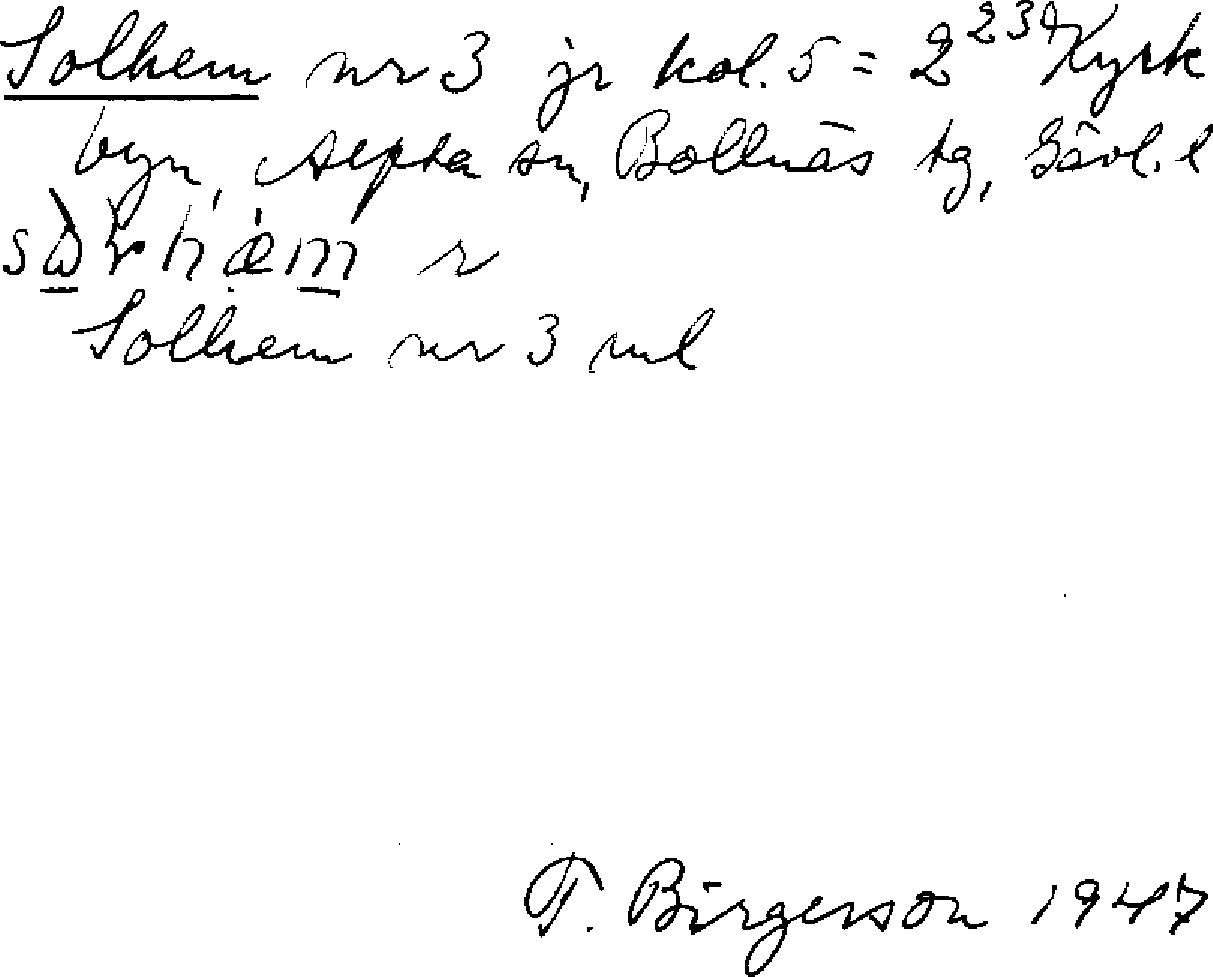 Solhem nr 3 jr kol. 5 = 2²³ Kyrk
byn, Alfta sn, Bollnäs tg, Gävl. l
Solhem nr 3 ml
T. Birgerson 1947